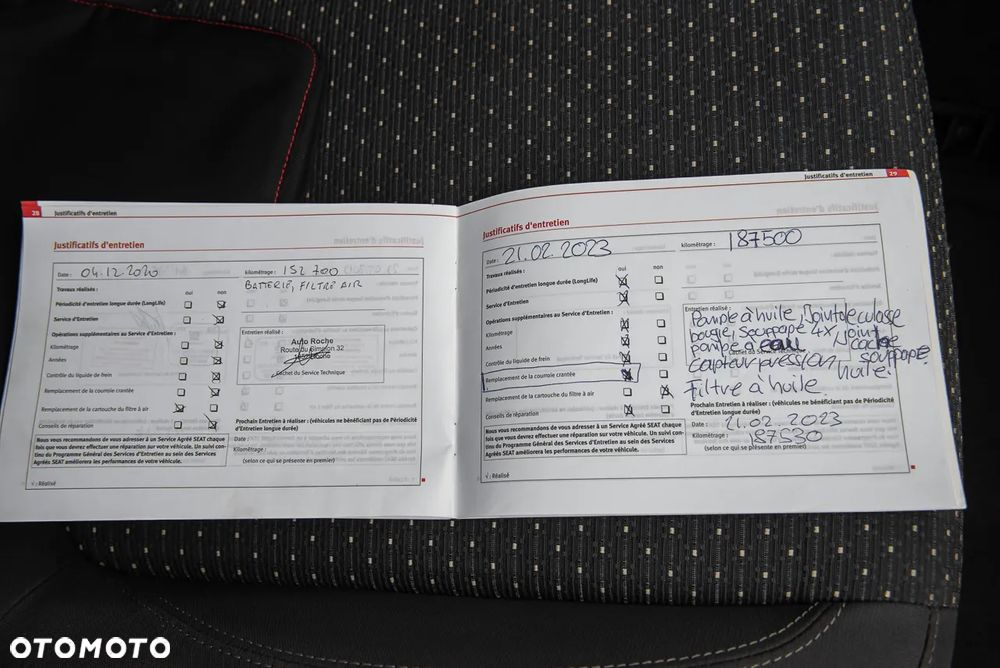 28 Justificatifs d'entretien
Justificatifs d'entretien
Date : 04.12.2020 kilométrage : 152 700
BATERIE, FILTRE AIR
Travaux réalisés : oui non
Périodicité d'entretien longue durée (LongLife)
Service d'Entretien
Opérations supplémentaires au Service d'Entretien :
Kilométrage
Années
Contrôle du liquide de frein
Remplacement de la courroie crantée
Remplacement de la cartouche du filtre à air
Conseils de réparation
Entretien réalisé :
Auto Roche
Route du Simplon 32
Cachet du Service Technique
Prochain Entretien à réaliser : (véhicules ne bénéficiant pas de Périodicité
d'Entretien longue durée)
Date :
Kilométrage :
(selon ce qui se présente en premier)
Nous vous recommandons de vous adresser à un Service Agréé SEAT chaque
fois que vous devez effectuer une réparation sur votre véhicule. Un suivi con-
tinu du Programme Général des Services d'Entretien au sein des Services
Agréés SEAT améliorera les performances de votre véhicule.
√ : Réalisé
Justificatifs d'entretien 29
Justificatifs d'entretien
Date : 21.02.2023 kilométrage : 187500
Travaux réalisés : oui non
Périodicité d'entretien longue durée (LongLife)
Service d'Entretien
Opérations supplémentaires au Service d'Entretien :
Kilométrage
Années
Contrôle du liquide de frein
Remplacement de la courroie crantée
Remplacement de la cartouche du filtre à air
Conseils de réparation
Entretien réalisé :
Pompe à huile, Joint de culasse
bougie, Souppape 4X, joint
pompe à eau cache
Cachet du Service
capteur pression souppape
huile.
Filtre à huile
Prochain Entretien à réaliser : (véhicules ne bénéficiant pas de Périodicité
d'Entretien longue durée)
Date : 21.02.2023
Kilométrage : 187530
(selon ce qui se présente en premier)
Nous vous recommandons de vous adresser à un Service Agréé SEAT chaque
fois que vous devez effectuer une réparation sur votre véhicule. Un suivi con-
tinu du Programme Général des Services d'Entretien au sein des Services
Agréés SEAT améliorera les performances de votre véhicule.
√ : Réalisé
OTOMOTO